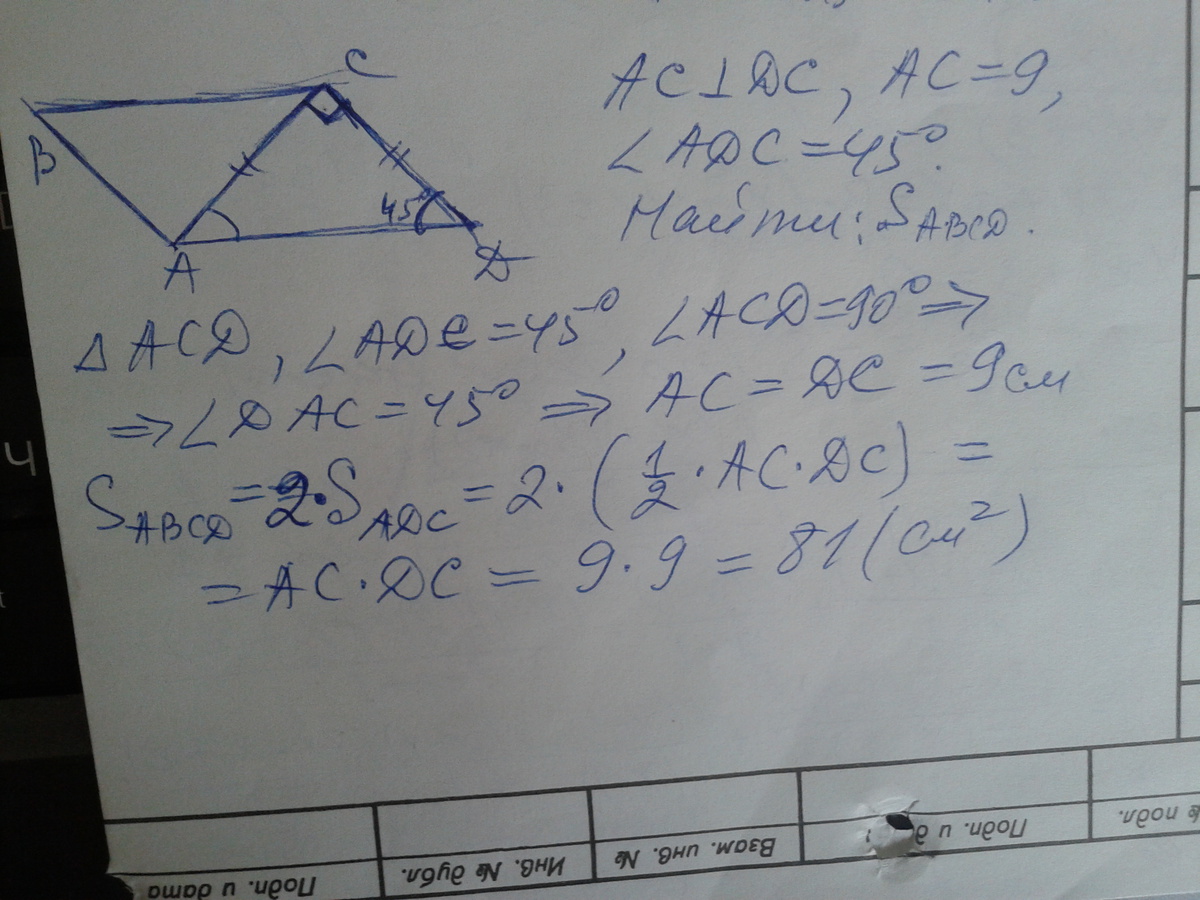 C
B
A
D
45°
AC⊥DC, AC=9,
∠ADC=45°.
Найти: S_ABCD.
△ACD, ∠ADC=45°, ∠ACD=90° ⇒
⇒ ∠DAC=45° ⇒ AC=DC=9см
S_ABCD = 2·S_ADC = 2·(1/2·AC·DC) =
= AC·DC = 9·9 = 81 (см²)
Подп. и дата
Инв. № дубл.
Взам. инв. №
Подп. и д
№ подл.